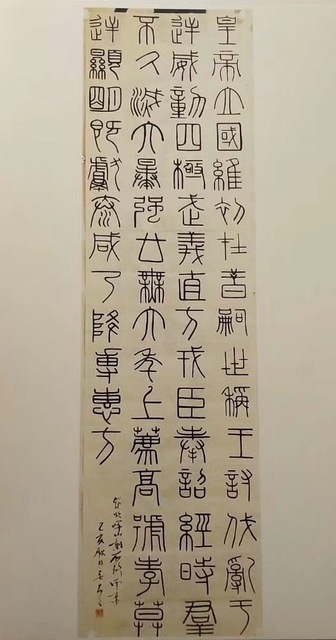 皇帝立國維初在昔嗣世稱王討伐亂
逆威動四極武義直方戎臣奉詔經時
不久滅六暴強廿六年上薦高號孝
顯明既獻泰成乃降專惠方